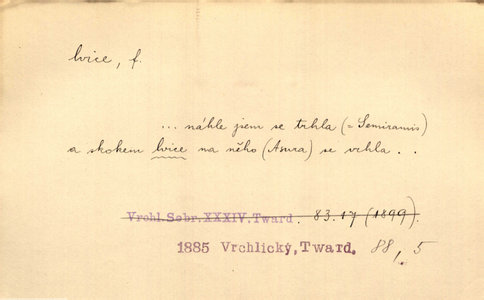 lvice, f.
... náhle jsem se trhla (= Semiramis)
a skokem lvice na něho (Assura) se vrhla . .
Vrchl. Sebr. XXXIV, Tward. 83.17 (1899).
1885 Vrchlický, Tward. 88, 5